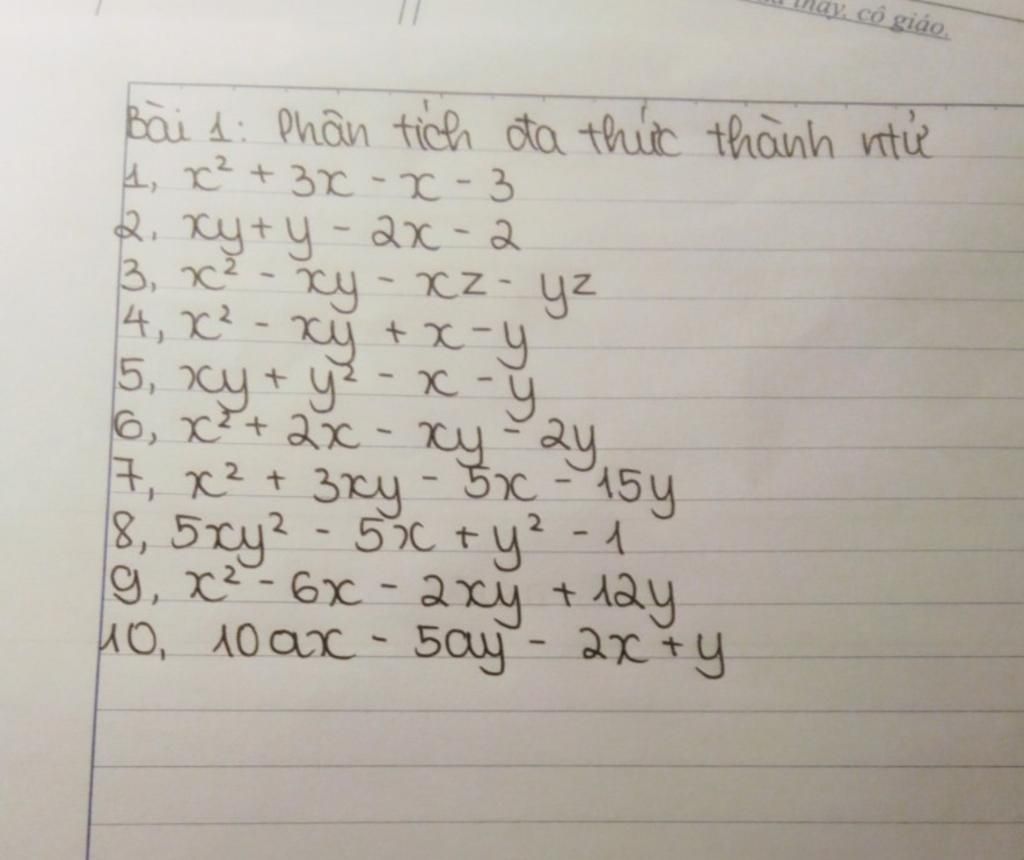 thầy, cô giáo.
Bài 1: Phân tích đa thức thành ntử
1, x² + 3x - x - 3
2, xy + y - 2x - 2
3, x² - xy - xz - yz
4, x² - xy + x - y
5, xy + y² - x - y
6, x² + 2x - xy - 2y
7, x² + 3xy - 5x - 15y
8, 5xy² - 5x + y² - 1
9, x² - 6x - 2xy + 12y
10, 10ax - 5ay - 2x + y